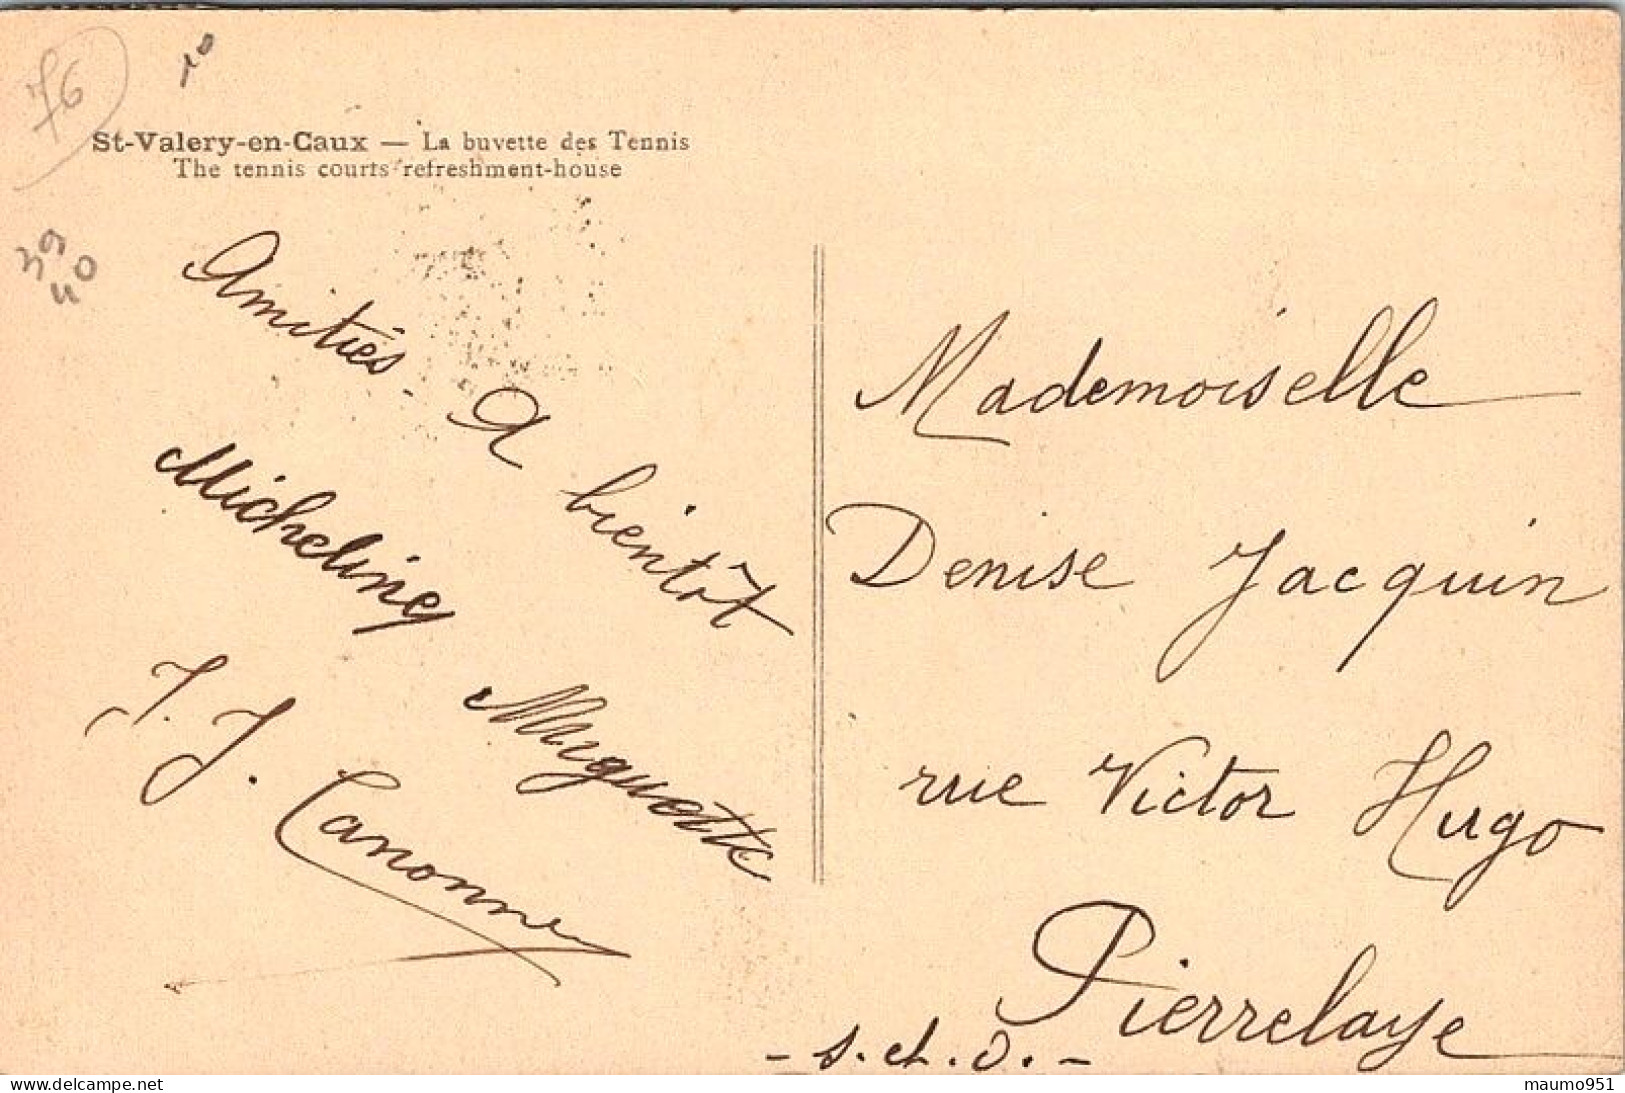 76
10
St-Valery-en-Caux — La buvette des Tennis
The tennis courts refreshment-house
39
40
Amitiés. A bientôt
Micheline Muguette
J. J. Canonne
Mademoiselle
Denise Jacquin
rue Victor Hugo
Pierrelaye
- S. et. O. -
maumo951